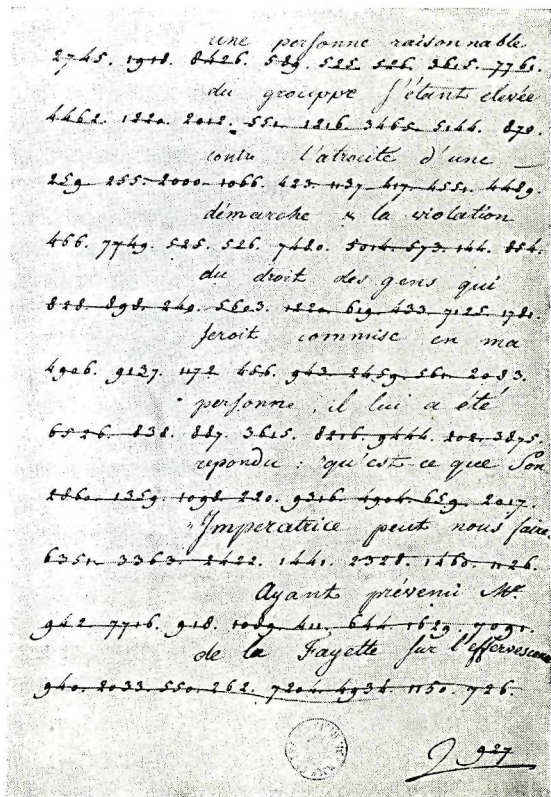 une personne raisonnable
2745. 1918. 8426. 589. 525. 526. 3615. 7761.
du grouppe s'étant elevée
4462. 1220. 2012. 551. 1216. 3465. 5144. 870.
contre l'atrocité d'une
259. 255. 2000. 1066. 423. 1137. 417. 4551. 4489.
démarche & la violation
466. 7749. 525. 526. 7480. 5014. 573. 144. 854.
du droit des gens qui
828. 898. 240. 5603. 1220. 619. 433. 7125. 1781.
seroit commise en ma
4906. 9137. 1172. 456. 943. 2459. 561. 2083.
personne, il lui a été
6526. 838. 887. 3615. 8216. 9444. 202. 3875.
repondu : "qu'est-ce que Son
2860. 1359. 1098. 220. 9316. 4904. 659. 2017.
"Imperatrice peut nous faire.
6351. 3363. 2422. 1441. 2328. 1460. 1126.
Ayant prévenu Mr.
942. 7716. 918. 1089. 411. 644. 1629. 7091.
de la Fayette sur l'effervescence
940. 2033. 550. 262. 7204. 4934. 1150. 726.
927